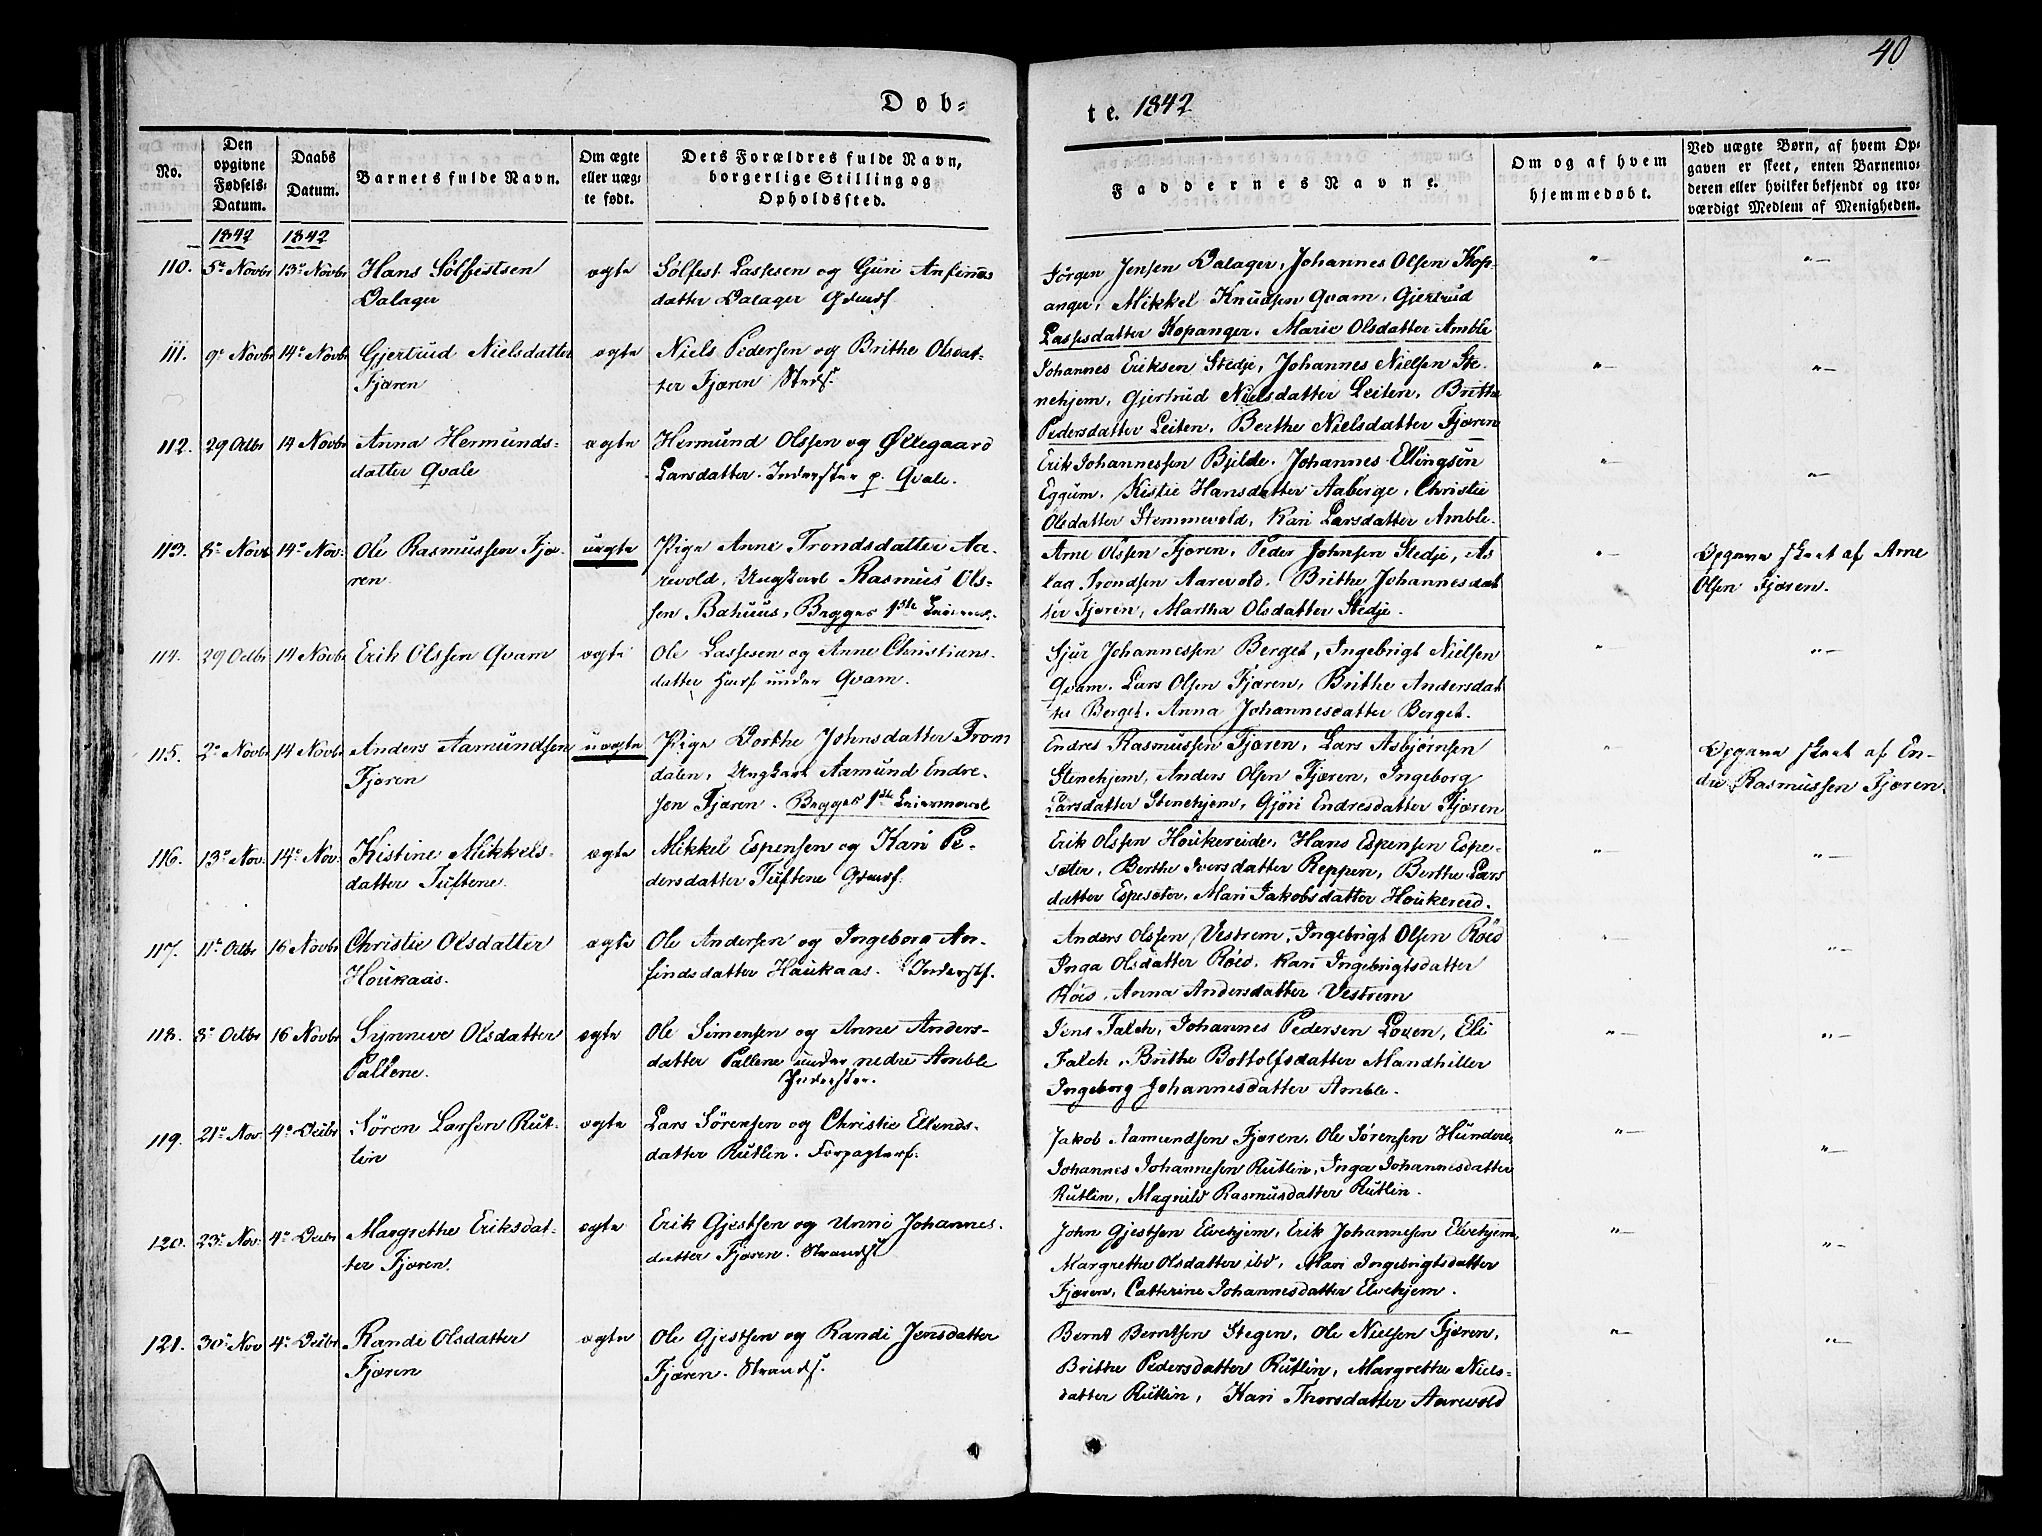 40
Døb-
te. 1842
No.
Den
opgivne
Fødsels-
Datum.
Daabs
Datum.
Barnets fulde Navn.
Om ægte
eller uæg-
te født.
Dets Forældres fulde Navn,
borgerlige Stilling og
Opholdssted.
Faddernes Navne.
Om og af hvem
hjemmedøbt.
Ved uægte Børn, af hvem Op-
gaven er skeet, enten Barnemo-
deren eller hvilket bekjendt og tro-
værdigt Medlem af Menigheden.
1842 1842
110. 5te Novbr 13de Novbr
Hans Sølfestsen
Dalager
ægte
Sølfest Lassesen og Guri Anfinns
datter Dalager Gdmdf.
Jørgen Jensen Dalager, Johannes Olsen Kop-
anger, Mikkel Knudsen Qvam, Gjertrud
Lassesdatter Kopanger. Marie Olsdatter Amble
"— "—
111. 9de Novbr 14de Novbr
Gjertrud Nielsdatter
Fjæren
ægte
Niels Pedersen og Brithe Olsdat-
ter Fjæren Strdf.
Johannes Eriksen Stedje, Johannes Nielsen Ste-
nehjem, Gjertrud Nielsdatter Leiten, Brithe
Pedersdatter Leiten, Berthe Nielsdatter Fjæren
"— "—
112. 29 Octbr 14 Novbr
Anna Hermunds-
datter Qvale
ægte
Hermund Olssen og Øllegaard
Larsdatter. Inderster p. Qvale.
Erik Johannessen Bjelde. Johannes Ellingsen
Eggum. Kistie Hansdatter Aaberge, Christie
Olsdatter Stemmevold, Kari Larsdatter Amble.
"— "—
113. 8de Novbr 14de Nov.
Ole Rasmussen Fjæ-
ren.
uægte
Pige Anne Trondsdatter Aa-
revold, Ungkarl Rasmus Ols-
sen Bahuus, Begges 1ste Leiermaal.
Arne Olssen Fjæren, Peder Johnsen Stedje, As
lak Trondsen Aarevold. Brithe Johannesdat
ter Fjæren, Martha Olsdatter Stedje.
"—
Opgave skeet af Arne
Olsen Fjæren.
114. 29 Octbr 14 Novbr
Erik Olssen Qvam
ægte
Ole Lassesen og Anne Christians-
datter Huusf. under Qvam.
Sjur Johannessen Berget, Ingebrigt Nielsen
Qvam. Lars Olsen Fjæren, Brithe Andersdat
ter Berget. Anna Johannesdatter Berget.
"— "—
115. 2de Novbr 14 Novbr
Anders Aamundsen
Fjæren
uægte
Pige Dorthe Johnsdatter From
dalen, Ungkarl Aamund Endre-
sen Fjæren. Begges 1ste Leiermaal
Endres Rasmussen Fjæren, Lars Asbjørnsen
Stenehjem, Anders Olsen Fjæren, Ingeborg
Larsdatter Stenehjem, Gjøri Endresdatter Fjæren
"—
Opgave skeet af En-
dre Rasmussen Fjæren.
116. 13de Nov. 14de Nov.
Kistine Mikkels-
datter Tuftene.
ægte
Mikkel Espensen og Kari Pe-
dersdatter Tuftene Gdmdf.
Erik Olssen Houkereide, Hans Espensen Espe-
sæter, Berthe Iversdatter Reppen, Berthe Lars
datter Espesæter, Mari Jakobsdatter Houkereid.
"— "—
117. 11te Octbr 16 Novbr
Christie Olsdatter
Houkaas.
ægte
Ole Andersen og Ingeborg An-
findsdatter Haukaas. Inderstf.
Anders Olssen Vestrem, Ingebrigt Olsen Røed
Inga Olsdatter Røed, Kari Ingebrigtsdatter
Røed, Anna Andersdatter Vestrem
"— "—
118. 8de Octbr 16 Novbr
Synneve Olsdatter
Pallene.
ægte
Ole Simensen og Anne Anders-
datter Pallene under nedre Amble
Inderster.
Jens Falch, Johannes Pedersen Loven, Eli
Falch, Brithe Bottolfsdatter Mandhiller
Ingeborg Johannesdatter Amble.
"— "—
119. 21de Nov. 4de Decbr
Søren Larssen Rut-
lin
ægte
Lars Sørensen og Christie Ellends-
datter Rutlin. Forpagterf.
Jakob Aamundsen Fjæren, Ole Sørensen Hundere,
Johannes Johannesen Rutlin, Inga Johannesdatter
Rutlin, Magnild Rasmusdatter Rutlin.
"— "—
120. 23de Nov. 4de Decbr
Margrethe Eriksdat-
ter Fjæren.
ægte
Erik Gjestsen og Unni Johannes-
datter Fjæren. Strandf.
John Gjestsen Elvehjem, Erik Johannesen Elvehjem,
Margrethe Olsdatter ibd, Mari Ingebrigtsdatter
Fjæren, Catterine Johannesdatter Elvehjem.
"— "—
121. 30te Nov 4de Decbr
Randi Olsdatter
Fjæren
ægte
Ole Gjestsen og Randi Jensdatter
Fjæren. Strandf.
Bernt Berntsen Stegen, Ole Nielsen Fjæren,
Brithe Pedersdatter Rutlin, Margrethe Niels-
datter Rutlin, Kari Thorsdatter Aarevold
"— "—